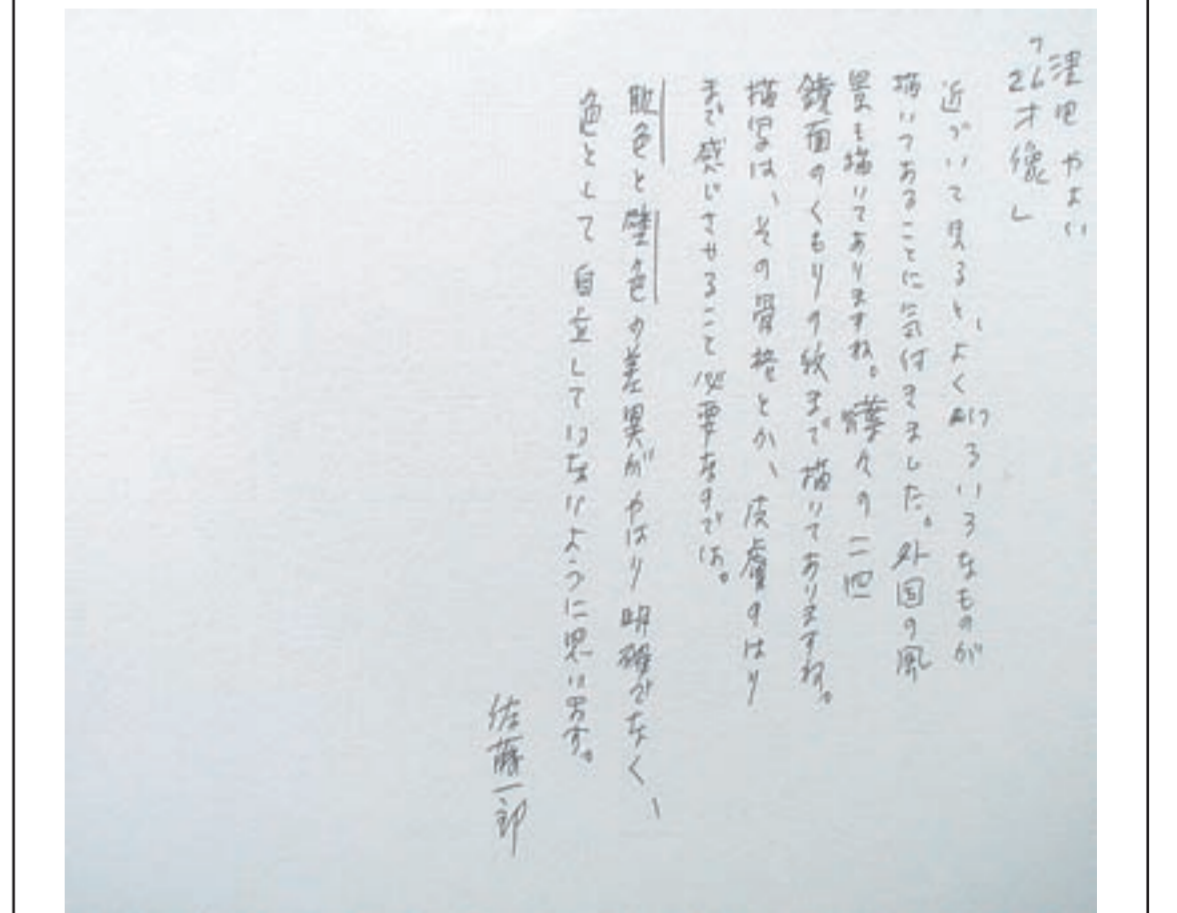 津田やよい
「26才像」
近づいて見ると、よくいろいろなものが
描いてあることに気付きました。外国の風
景も描いてありますね。 々の二回
鏡面のくもりの紋まで描いてありますね。
描写は、その骨格とか、皮膚のはり
まで感じさせること必要なのでは。
肌色と壁色の差異がやはり明確でなく、
色として自立していないように思います。
佐藤一郎